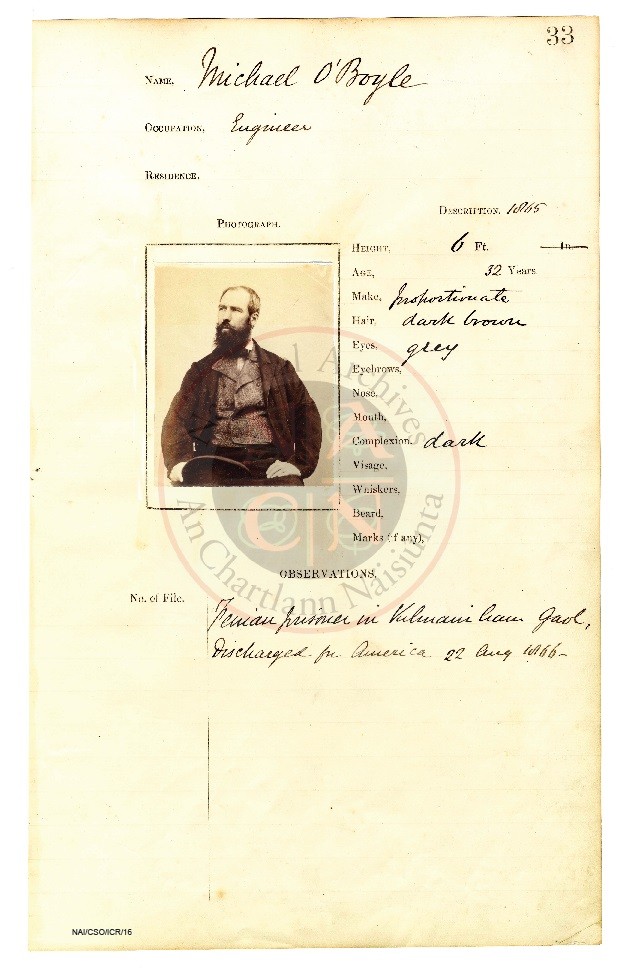 33
NAME, Michael O'Boyle
OCCUPATION, Engineer
RESIDENCE.
DESCRIPTION. 1865
PHOTOGRAPH.
HEIGHT, 6 Ft. in
AGE, 32 Years
Make, proportionate
Hair, dark brown
Eyes, grey
Eyebrows,
Nose,
Mouth,
Complexion, dark
Visage,
Whiskers,
Beard,
Marks (if any),
OBSERVATIONS.
No. of File.
Fenian prisoner in Kilmainham Gaol,
Discharged for America 22 Aug 1866-
National Archives
A C N
An Chartlann Naisiunta
NAI/CSO/ICR/16